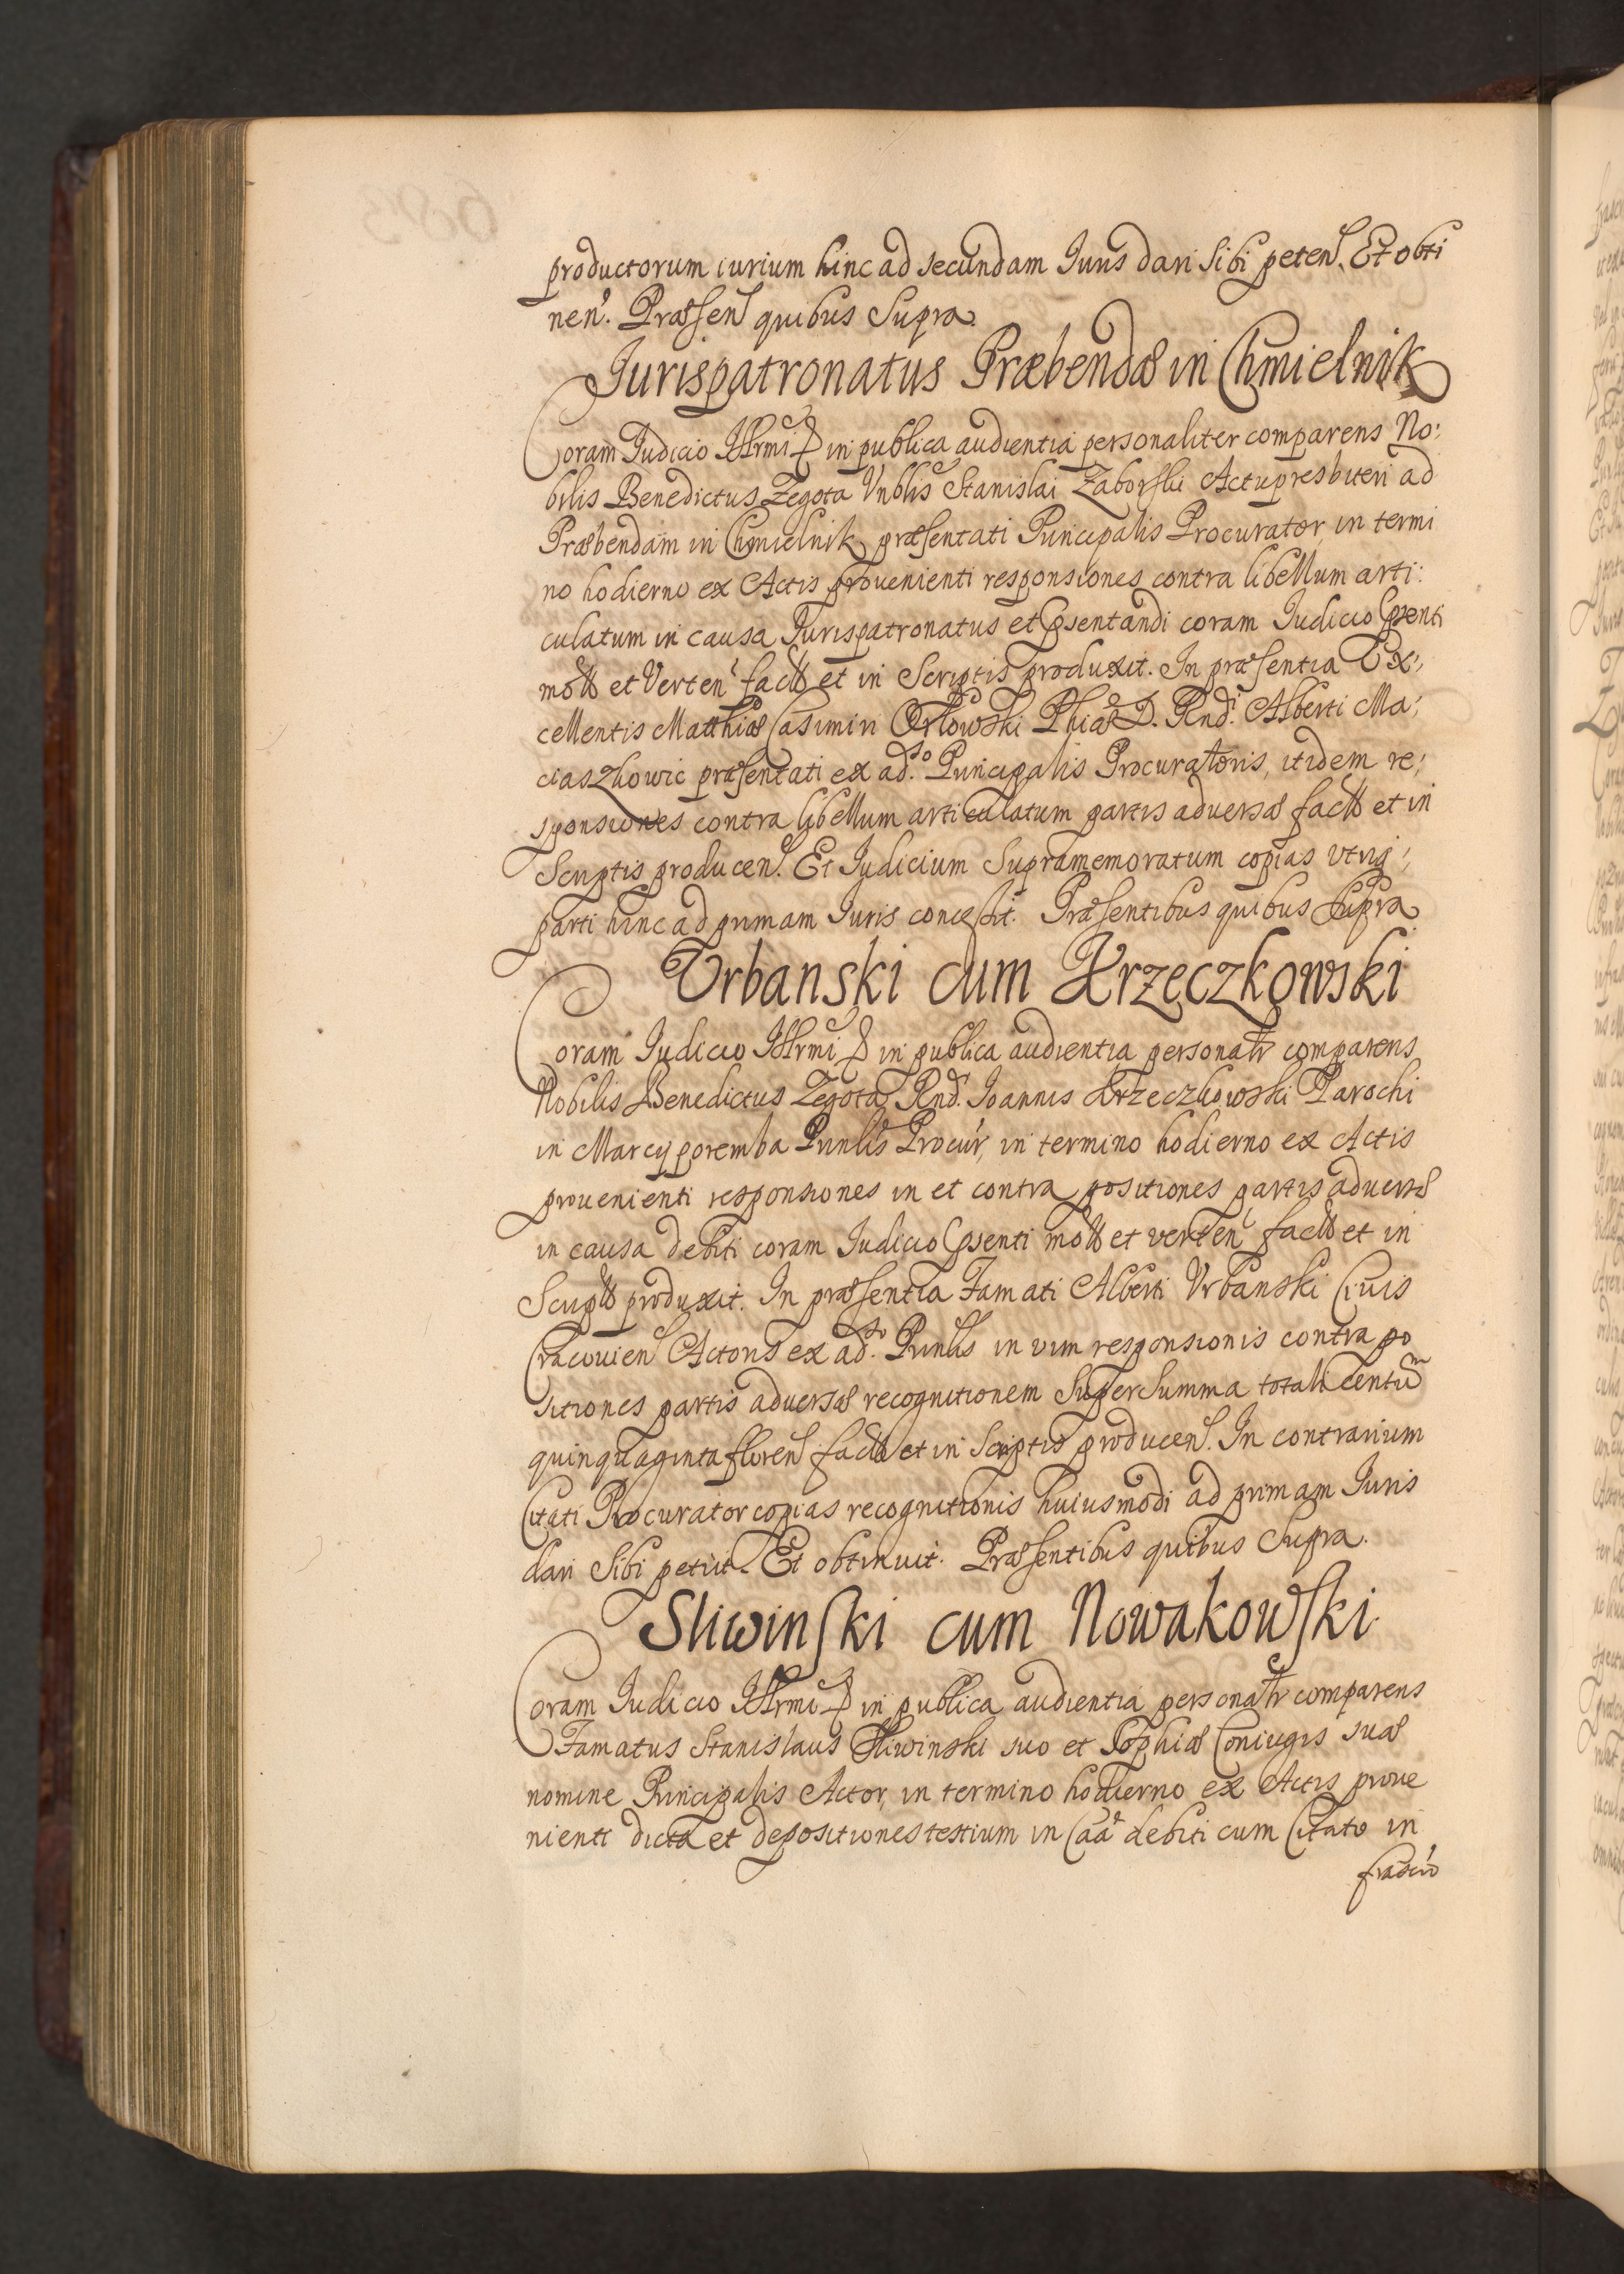 productorum iurium hinc ad secundam Iuris dari sibi peten. Et obti
nen. Præsen quibus supra.
Jurispatronatus Præbendæ in Chmielnik
Coram Judicio Illrmi in publica audientia personaliter comparens No:
bilis Benedictus Zegota Vnblis Stanislai Zaborski Actupresbiteri ad
Præbendam in Chmielnik præsentati Principalis Procurator, in termi
no hodierno ex Actis prouenienti responsiones contra libellum arti:
culatum in causa Jurispatronatus et psentandi coram Judicio psenti
et Verten et in Scriptis produxit. In præsentia Ex:
cellentis Matthiæ Casimiri Orłowski Phiæ D. Rnd. Alberti Ma:
ciaszkowic præsentati ex ad.so Principalis Procuratoris, itidem re:
sponsiones contra libellum articulatum partis adversæ et in
Scriptis producen. Et Judicium supramemoratum copias vtriq:
parti hinc ad primam Iuris concessit. Præsentibus quibus supra.
Vrbanski cum Krzeczkowski
Coram Judicio Illrmi in publica audientia personalr comparens
Nobilis Benedictus Zegota Rnd. Joannis Krzeczkowski Parochi
in Marcyporemba Prinlis Procur, in termino hodierno ex Actis
prouenienti responsiones in et contra positiones partis adversæ
in causa debiti coram Judicio psenti et verten et in
produxit. In præsentia Famati Alberti Vrbanski Ciuis
Cracouien Actoris ex ad.so Prinlis in vim responsionis contra po
sitiones partis adversæ recognitionem super summa totali centum
quinquaginta floren et in Scriptis producen. In contrarium
Citati Procurator copias recognitionis huiusmodi ad primam Iuris
dari sibi petiit. Et obtinuit. Præsentibus quibus supra.
Sliwinski cum Nowakowski
Coram Judicio Illrmi in publica audientia personalr comparens
Famatus Stanislaus Sliwinski suo et Sophiæ Coniugis suæ
nomine Principalis Actor, in termino hodierno ex Actis proue
nienti dicta et depositiones testium in Caa debiti cum Citato in